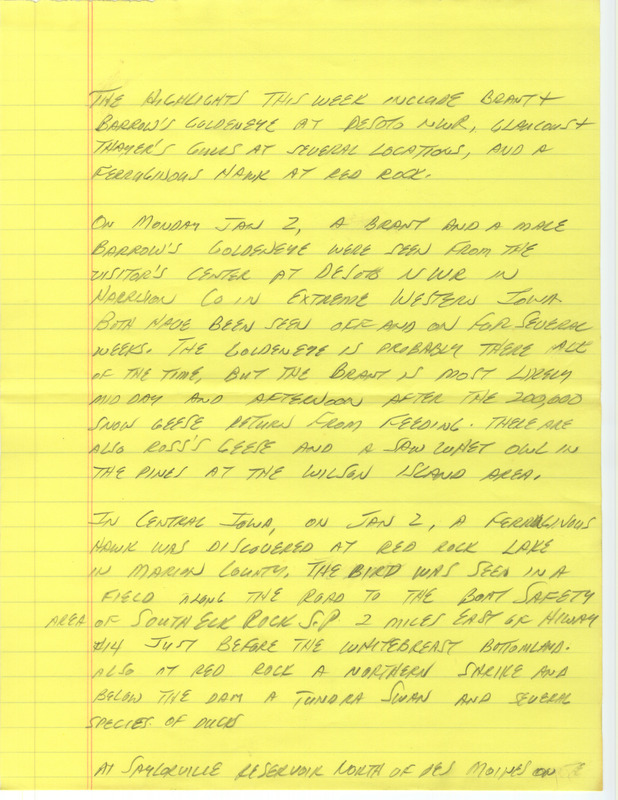 THE HIGHLIGHTS THIS WEEK INCLUDE BRANT +
BARROW'S GOLDENEYE AT DESOTO NWR, GLAUCOUS +
THAYER'S GULLS AT SEVERAL LOCATIONS, AND A
FERRUGINOUS HAWK AT RED ROCK.
ON MONDAY JAN 2, A BRANT AND A MALE
BARROW'S GOLDENEYE WERE SEEN FROM THE
VISITOR'S CENTER AT DESOTO NWR IN
HARRISON CO IN EXTREME WESTERN IOWA
BOTH HAVE BEEN SEEN OFF AND ON FOR SEVERAL
WEEKS. THE GOLDENEYE IS PROBABLY THERE ALL
OF THE TIME, BUT THE BRANT IS MOST LIKELY
MID DAY AND AFTERNOON AFTER THE 200,000
SNOW GEESE RETURN FROM FEEDING. THERE ARE
ALSO ROSS'S GEESE AND A SAW WHET OWL IN
THE PINES AT THE WILSON ISLAND AREA.
IN CENTRAL IOWA, ON JAN 2, A FERRUGINOUS
HAWK WAS DISCOVERED AT RED ROCK LAKE
IN MARION COUNTY. THE BIRD WAS SEEN IN A
FIELD ALONG THE ROAD TO THE BOAT SAFETY
AREA OF SOUTH ELK ROCK S.P. 2 MILES EAST OF HIWAY
#14 JUST BEFORE THE WHITEBREAST BOTTOMLAND.
ALSO AT RED ROCK A NORTHERN SHRIKE AND
BELOW THE DAM A TUNDRA SWAN AND SEVERAL
SPECIES OF DUCKS
AT SAYLORVILLE RESERVOIR NORTH OF DES MOINES ON